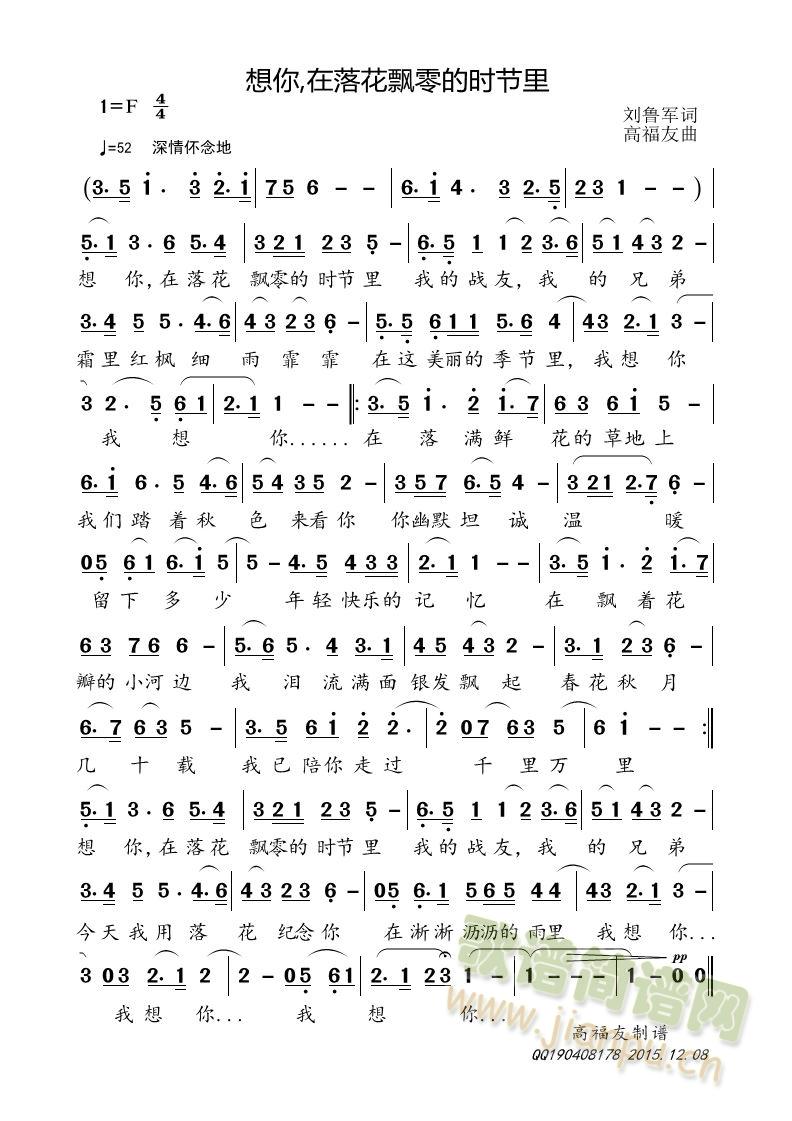 想你,在落花飘零的时节里
1=F 4/4
刘鲁军词
高福友曲
♩=52 深情怀念地
(3. 5 i. 3 2. i | 7 5 6 - - | 6. i 4. 3 2. 5 | 2 3 1 - - )
5. 1 3. 6 5. 4 | 3 2 1 2 3 5 - | 6. 5 1 1 2 3. 6 | 5 1 4 3 2 - |
想 你,在落花 飘零的时节里 我的战友,我 的 兄 弟
3. 4 5 5. 4. 6 | 4 3 2 3 6 - | 5. 5 6 1 1 5. 6 4 | 4 3 2. 1 3 - |
霜里红枫细 雨 霏 霏 在这美丽的季节里,我想 你
3 2. 5 6 1 | 2. 1 1 - - ‖: 3. 5 i. 2 i. 7 | 6 3 6 i 5 - |
我 想 你...... 在 落 满鲜 花的草地上
6. i 6. 5 4. 6 | 5 4 3 5 2 - | 3 5 7 6. 5 4 - | 3 2 1 2. 7 6 - |
我们踏 着秋 色 来看你 你幽默坦 诚 温 暖
0 5 6 1 6. i 5 | 5 - 4. 5 4 3 3 | 2. 1 1 - - | 3. 5 i. 2 i. 7 |
留下 多 少 年轻快乐的 记 忆 在 飘 着花
6 3 7 6 6 - | 5. 6 5. 4 3. 1 | 4 5 4 3 2 - | 3. 1 2 3 6 - |
瓣的小河边 我 泪 流满面 银发飘 起 春花秋 月
6. 7 6 3 5 - | 3. 5 6 i 2 2. | 2 0 7 6 3 5 | 6 i - - :‖
几 十 载 我已陪你走过 千里万 里
5. 1 3. 6 5. 4 | 3 2 1 2 3 5 - | 6. 5 1 1 2 3. 6 | 5 1 4 3 2 - |
想 你,在落花 飘零的时节里 我的战友,我 的 兄 弟
3. 4 5 5. 4. 6 | 4 3 2 3 6 - | 0 5 6. 1 5 6 5 4 4 | 4 3 2. 1 3 - |
今天我用落 花 纪念你 在淅淅沥沥的雨里 我想 你...
3 0 3 2. 1 2 | 2 - 0 5 6 1 | 2. 1 2 3 | 1 - - - | 1 - 0 0 ‖
pp
我想 你... 我 想 你...
高福友制谱
QQ190408178 2015.12.08
歌谱简谱网
www.jianpu.cn